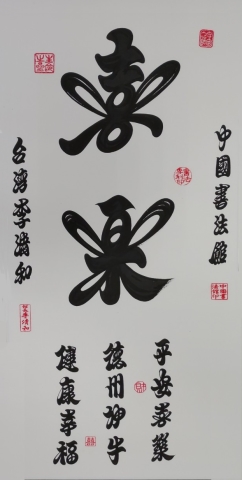 喜
樂
中國書法館
台灣李清和
平安喜樂
德州
健康幸福